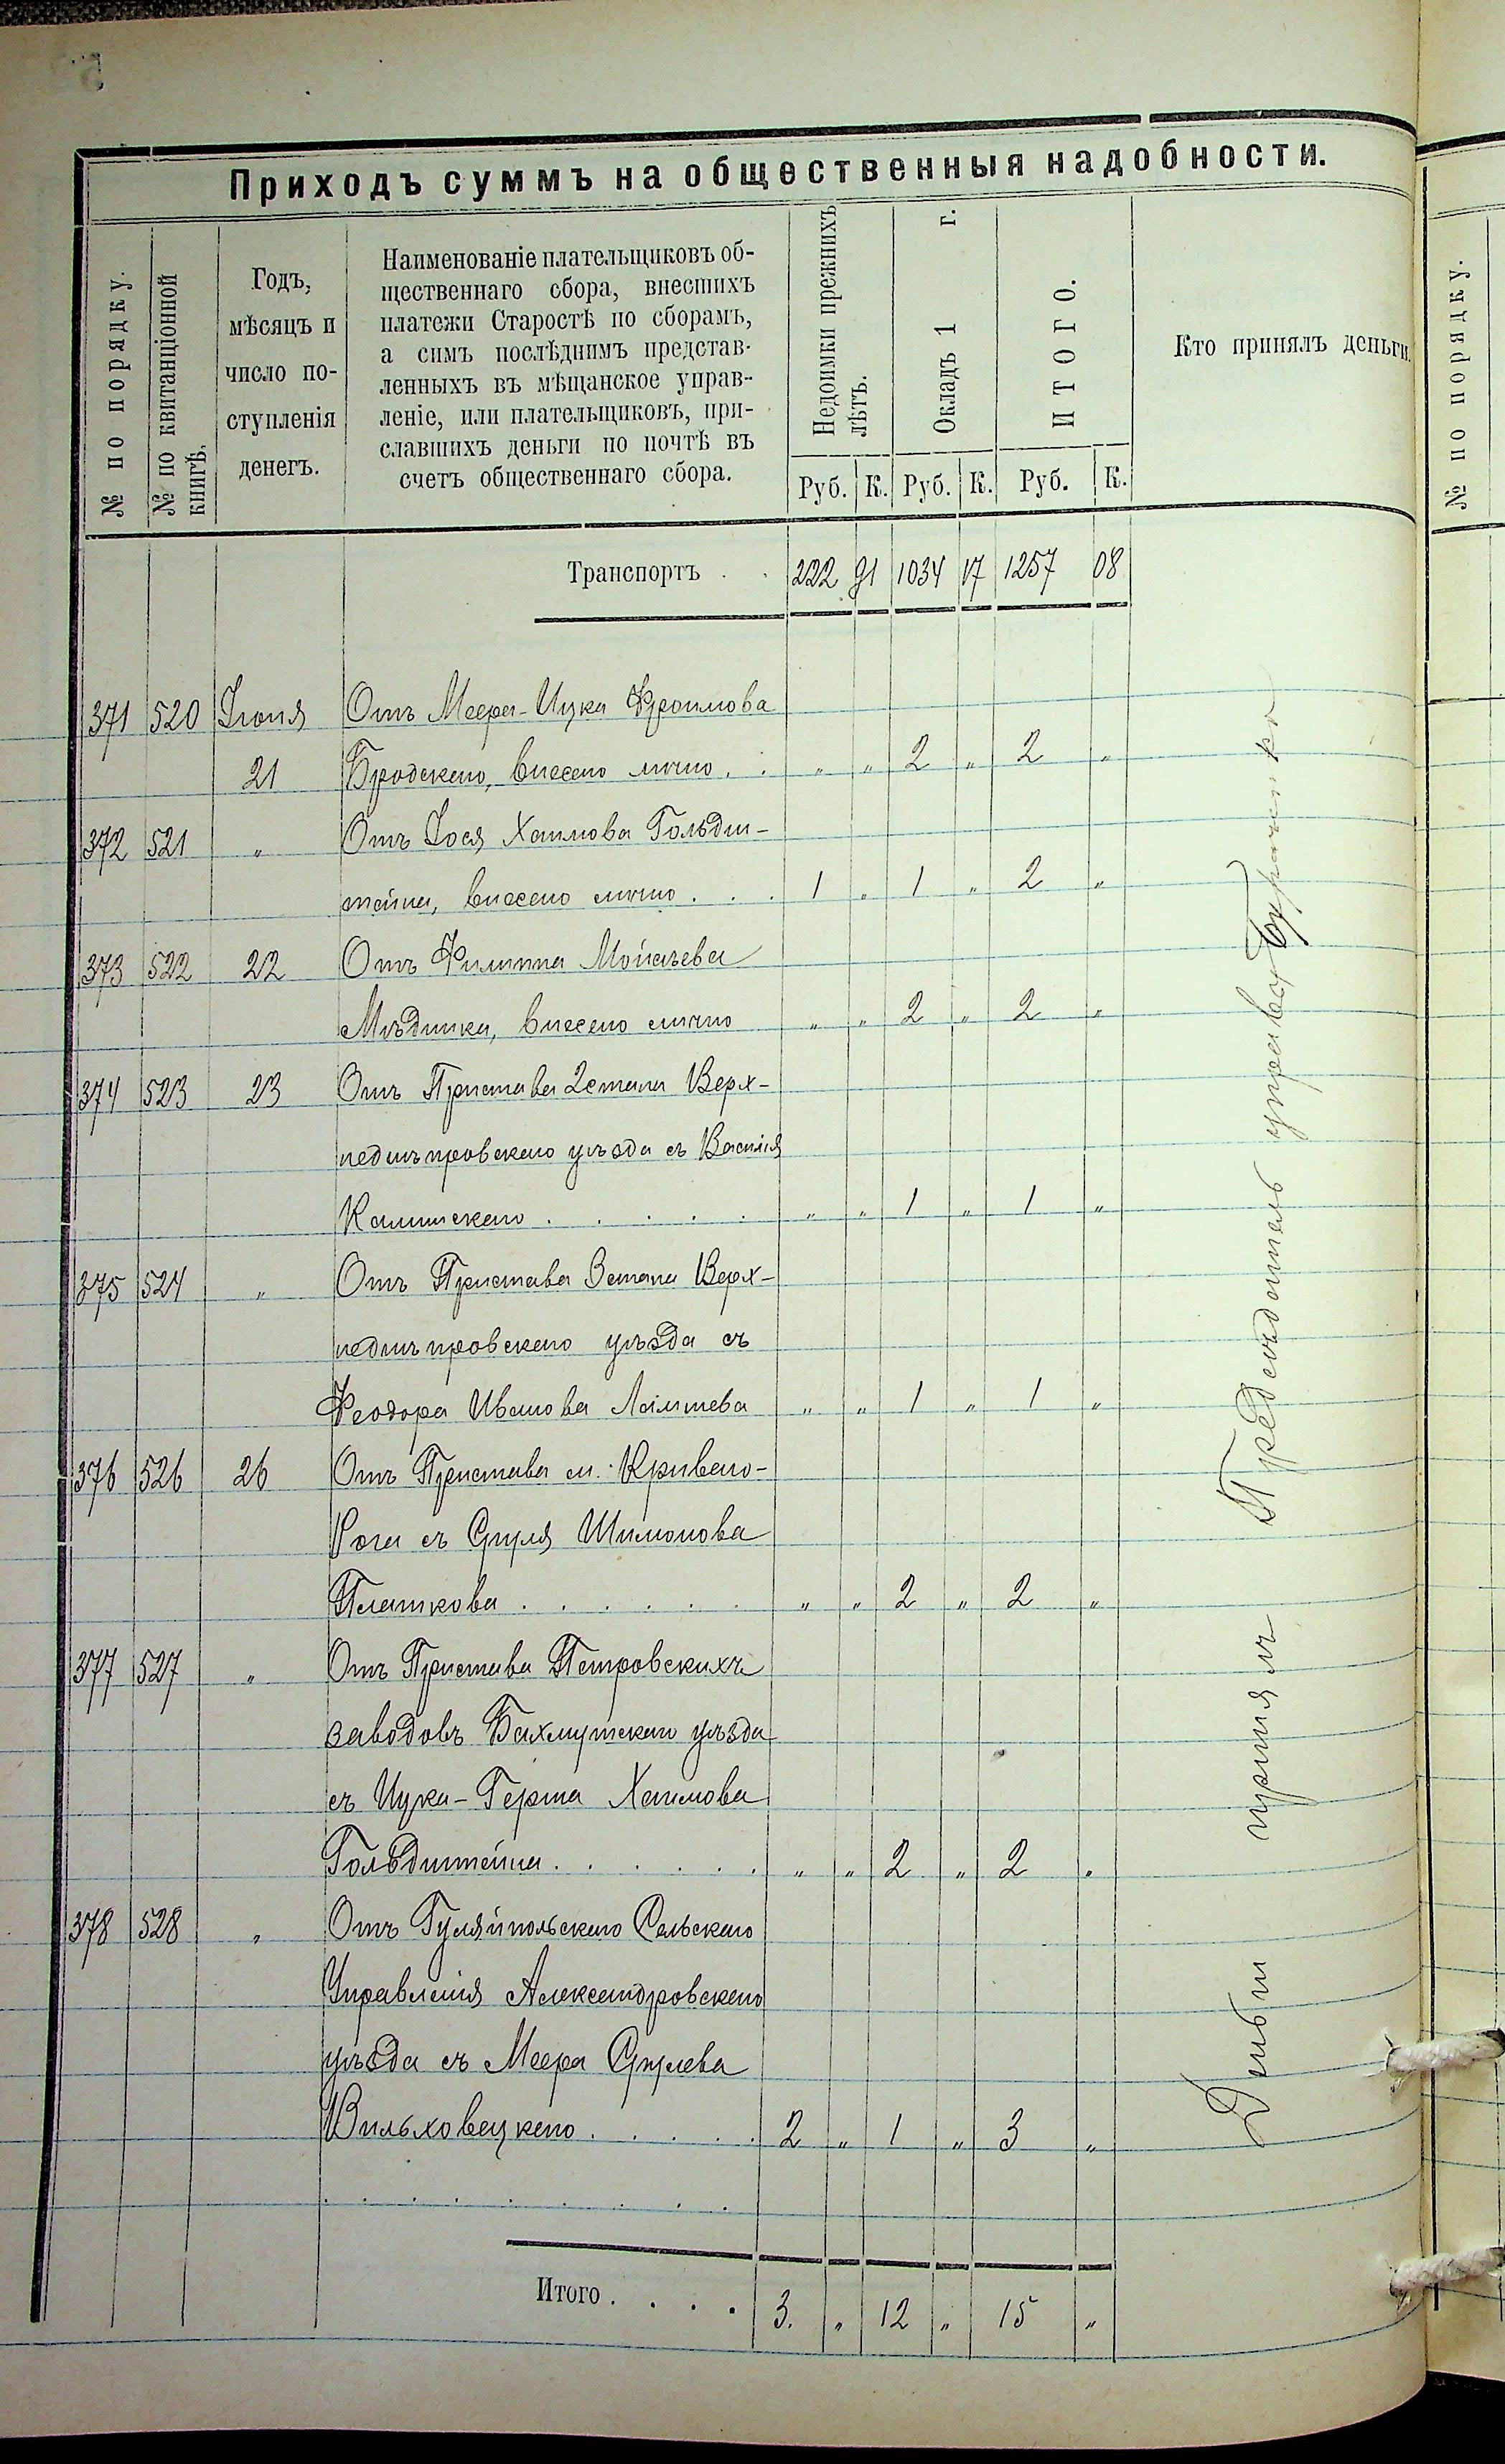 Приходъ суммъ на общественныя надобности.
№ по порядку.
№ по квитанціонной
книгѣ.
Годъ,
мѣсяцъ и
число по-
ступленія
денегъ.
Наименованіе плательщиковъ об-
щественнаго сбора, внесшихъ
платежи Старостѣ по сборамъ,
а симъ послѣднимъ представ-
ленныхъ въ мѣщанское управ-
леніе, или плательщиковъ, при-
славшихъ деньги по почтѣ въ
счетъ общественнаго сбора.
Недоимки прежнихъ
лѣтъ.
Окладъ 1 г.
ИТОГО.
Кто принялъ деньги.
Руб. К. Руб. К. Руб. К.
Транспортъ . . 222 91 1034 17 1257 08
371 520 Іюня Отъ Меера-Ицка Фроимова
21 Бродскаго, внесено лично . . „ „ 2 „ 2 „
372 521 „ Отъ Іося Хаимова Гольдш-
тейна, внесено лично . . . 1 „ 1 „ 2 „
373 522 22 Отъ Филиппа Мойсѣева
внесено лично „ „ 2 „ 2 „
374 523 23 Отъ Пристава 2 стана Верх-
неднѣпровскаго уѣзда съ Василія
Калишскаго . . . . . „ „ 1 „ 1 „
375 524 „ Отъ Пристава 3 стана Верх-
неднѣпровскаго уѣзда съ
Феодора Иванова „ „ 1 „ 1 „
376 526 26 Отъ Пристава м. Кривого-
Рога съ Сруля Шимонова
Платкова . . . . . . „ „ 2 „ 2 „
377 527 „ Отъ Пристава Петровскихъ
заводовъ Бахмутскаго уѣзда
съ Ицка-Герша Хаимова
Гольдштейна . . . . . . „ „ 2 „ 2 „
378 528 „ Отъ Гуляйпольскаго Сельскаго
Управленія Александровскаго
уѣзда съ Меера Срулева
Вильховецкаго . . . . . 2 „ 1 „ 3 „
Итого . . . . 3. „ 12 „ 15 „
Деньги принялъ Предсѣдатель управы
№ по порядку.